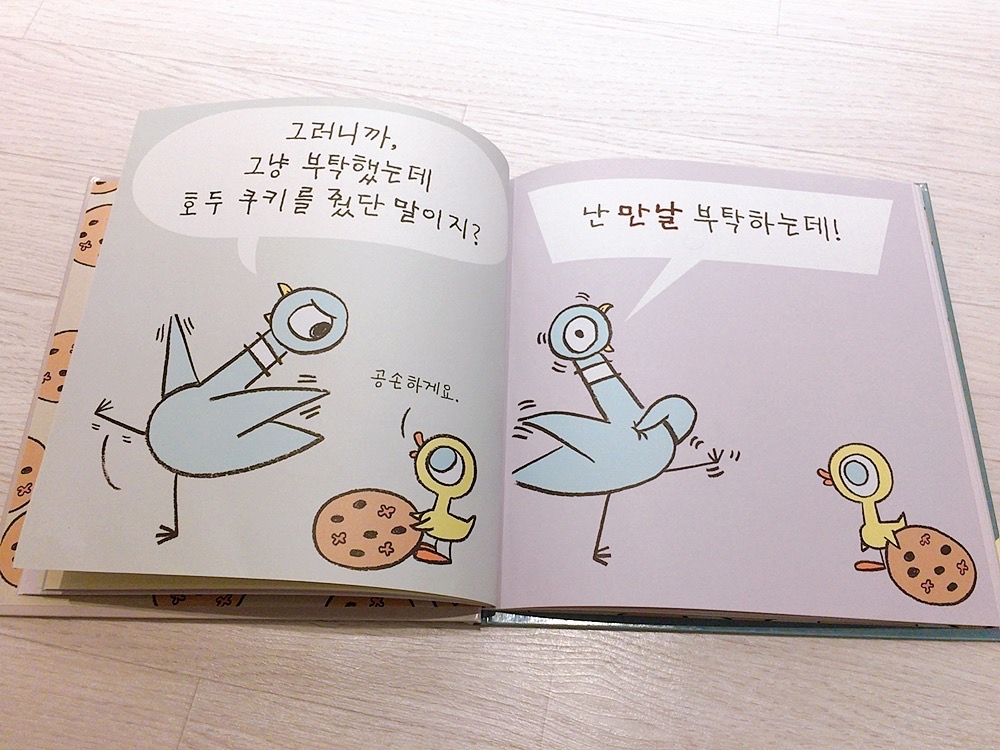 그러니까,
그냥 부탁했는데
호두 쿠키를 줬단 말이지?
공손하게요.
난 만날 부탁하는데!